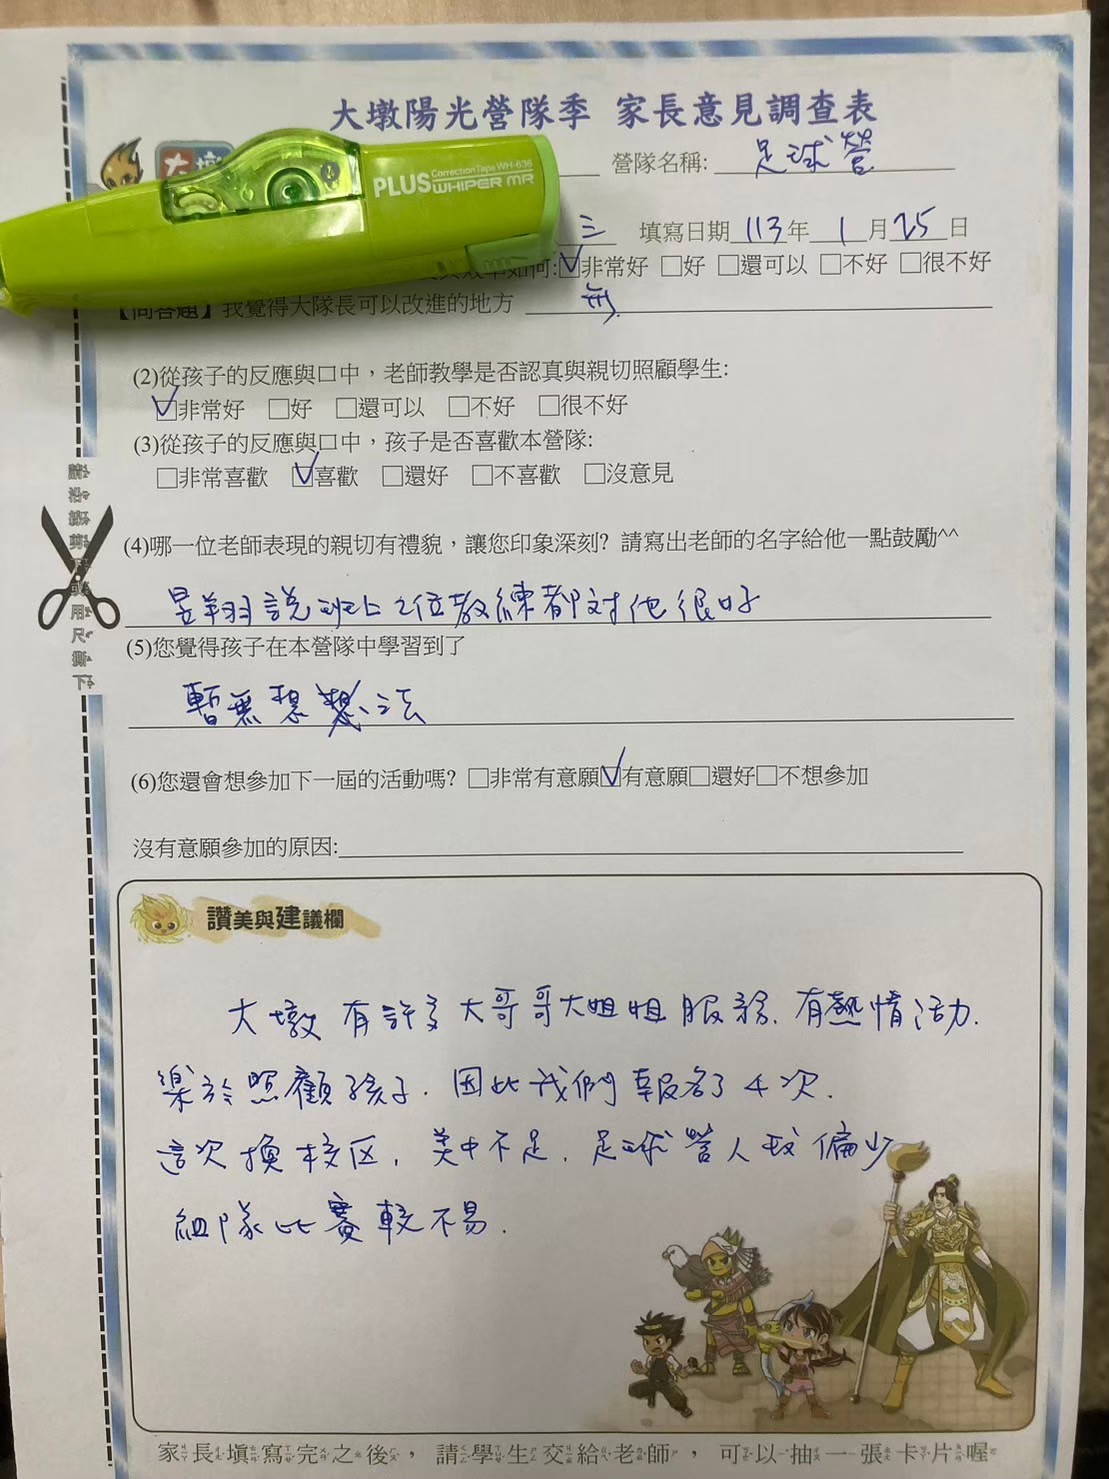 大墩陽光營隊季 家長意見調查表
大墩
營隊名稱: 足球營
PLUS CorrectionTape WH-636
WHIPER MR
三 填寫日期 113 年 1 月 25 日
如何:☑非常好 □好 □還可以 □不好 □很不好
【問答題】我覺得大隊長可以改進的地方 無.
(2)從孩子的反應與口中，老師教學是否認真與親切照顧學生:
☑非常好 □好 □還可以 □不好 □很不好
(3)從孩子的反應與口中，孩子是否喜歡本營隊:
□非常喜歡 ☑喜歡 □還好 □不喜歡 □沒意見
(4)哪一位老師表現的親切有禮貌，讓您印象深刻? 請寫出老師的名字給他一點鼓勵^^
昱翔說班上2位教練都對他很好
(5)您覺得孩子在本營隊中學習到了
暫無想法
(6)您還會想參加下一屆的活動嗎? □非常有意願☑有意願□還好□不想參加
沒有意願參加的原因:
讚美與建議欄
大墩有許多大哥哥大姐姐服務.有熱情活力.
樂於照顧孩子.因此我們報名了4次.
這次換校区,美中不足.足球營人數偏少
組隊比賽較不易.
家長填寫完之後，請學生交給老師，可以抽一張卡片喔